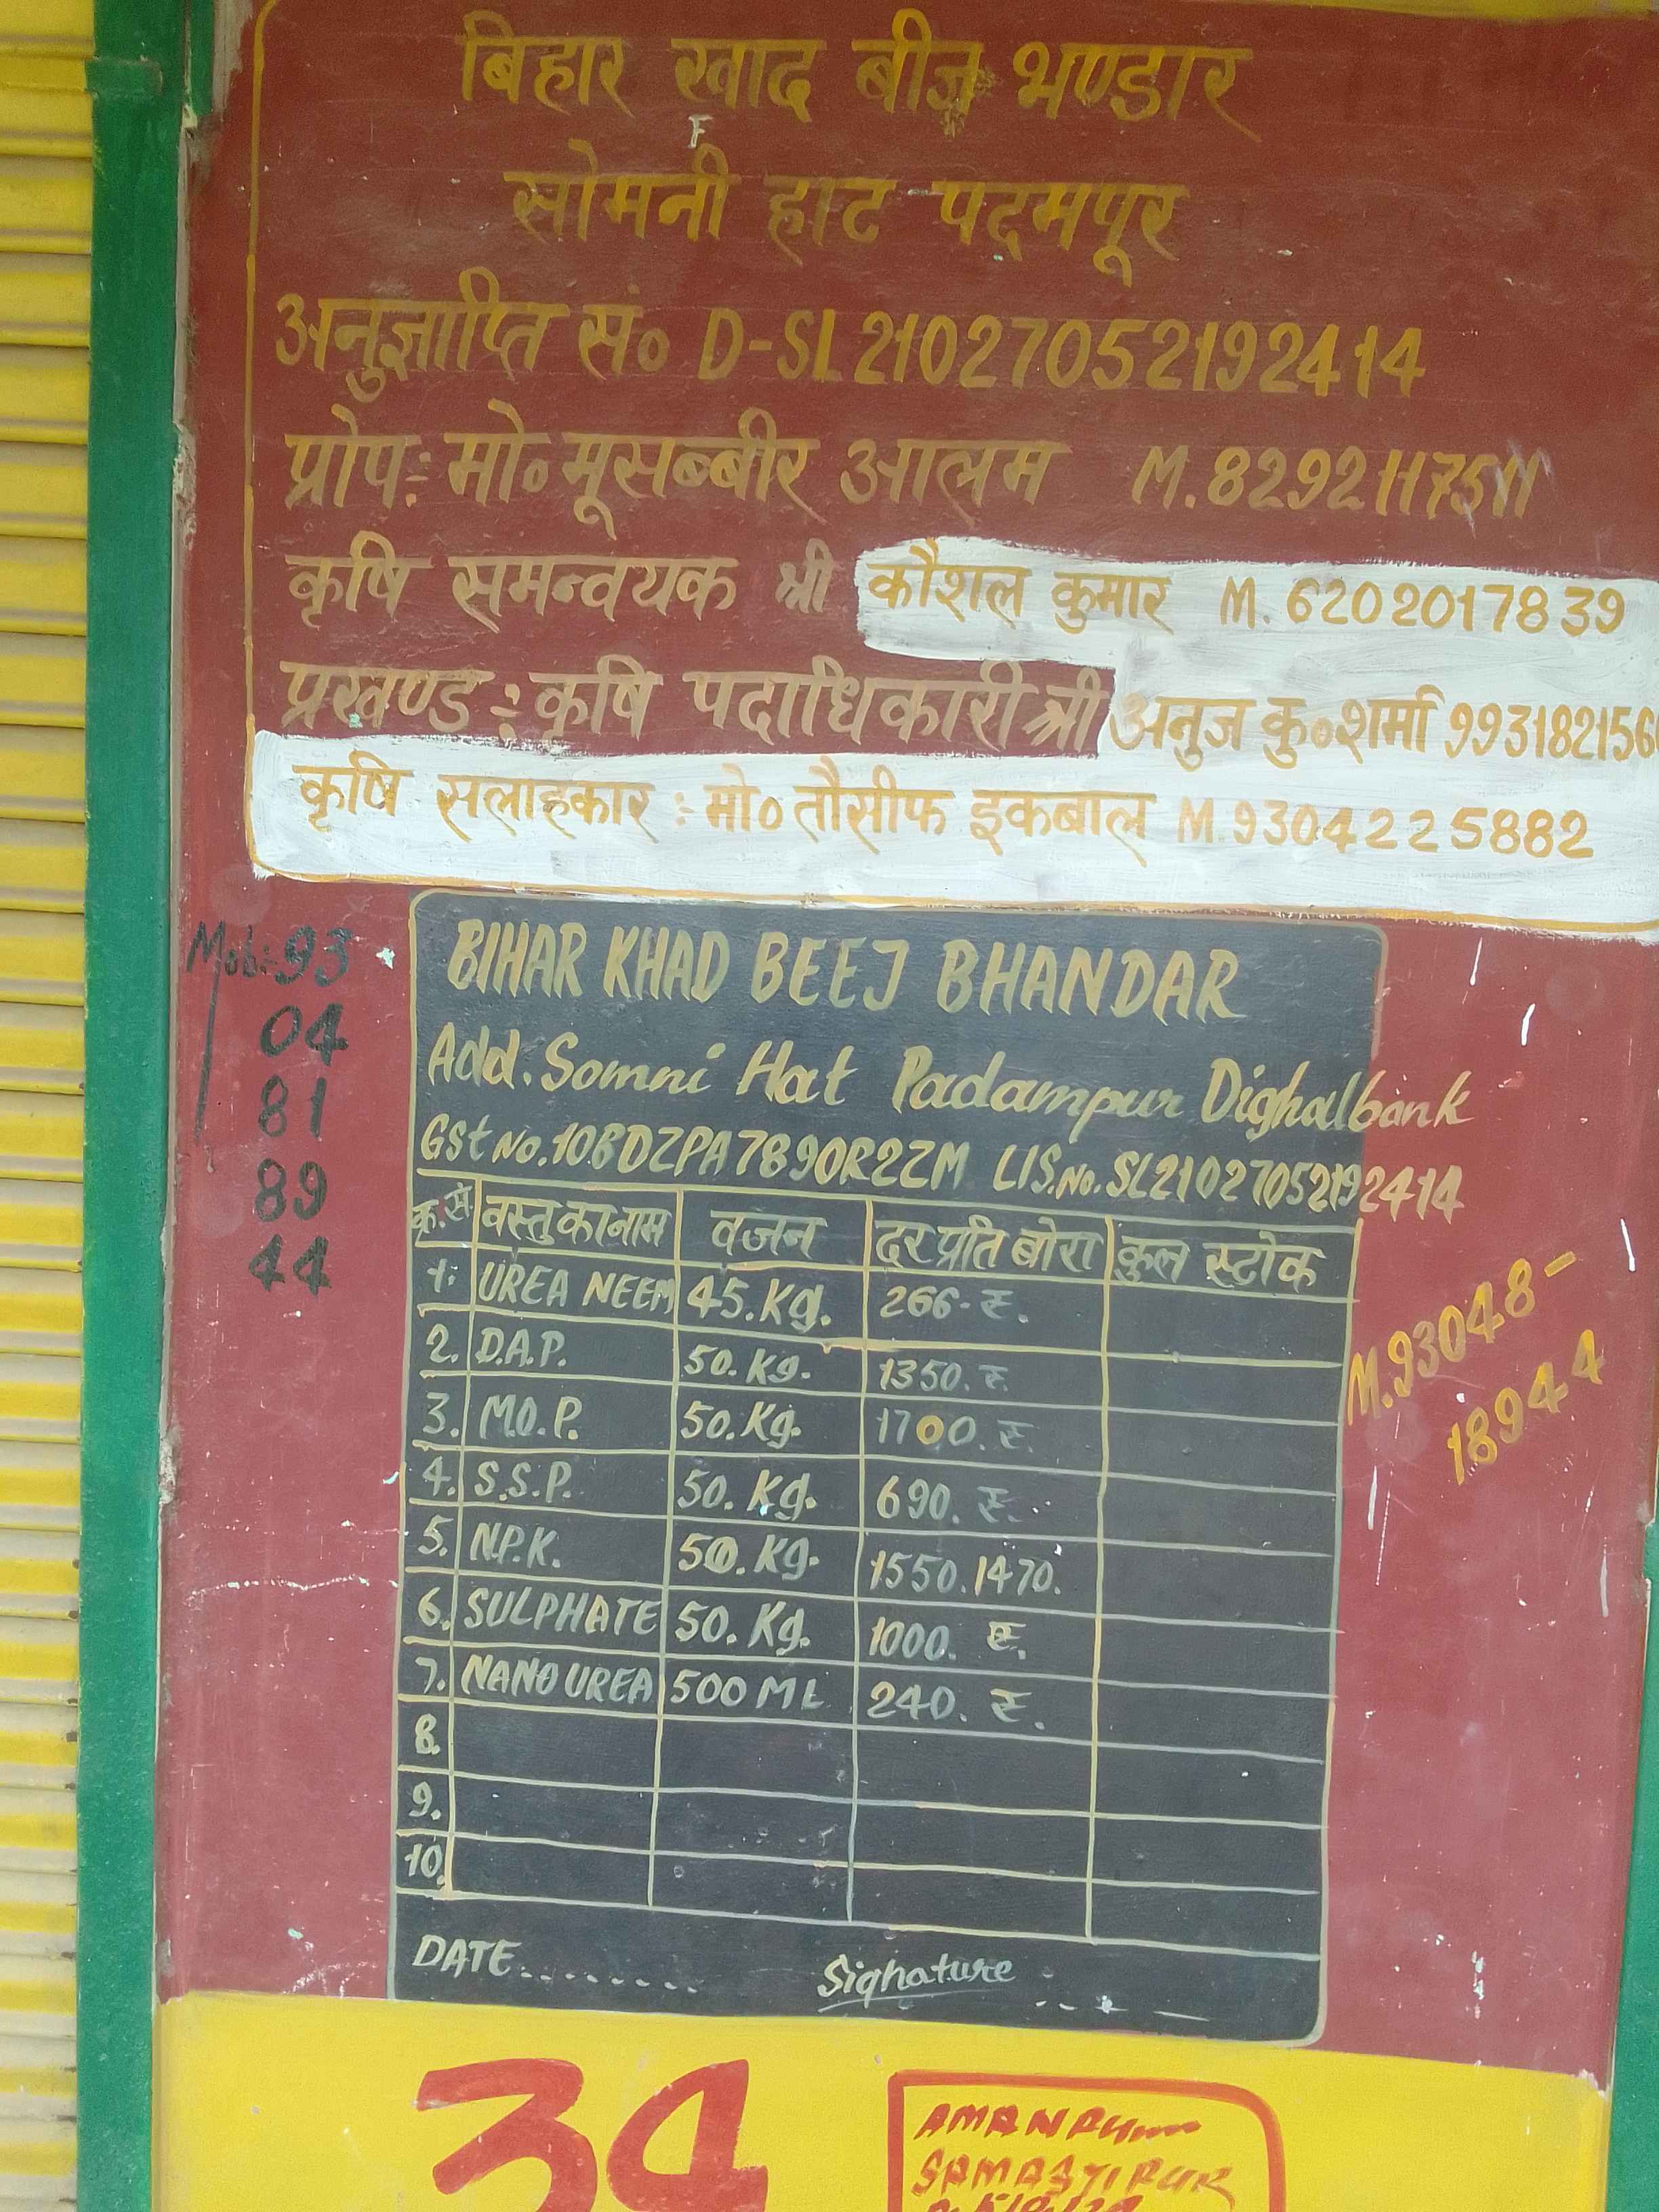 बिहार खाद बीज भण्डार
सोमनी हाट पदमपूर
अनुज्ञाप्ति सं० D-SL21027052192414
प्रोप: मो० मूसब्बीर आलम M.8292117511
कृषि समन्वयक श्री कौशल कुमार M. 6202017839
प्रखण्ड : कृषि पदाधिकारी श्री अनुज कु० शर्मा 993182156
कृषि सलाहकार : मो० तौसीफ इकबाल M.9304225882
Mob:93
04
81
89
44
BIHAR KHAD BEEJ BHANDAR
Add. Somni Hat Padampur Dighalbank
Gst No. 10BDZPA7890R2ZM LIS.No. SL21027052192414
क्र.सं. वस्तु का नाम वजन दर प्रति बोरा कुल स्टोक
1. UREA NEEM 45.Kg. 266-₹.
2. D.A.P. 50.Kg. 1350.₹.
3. M.O.P. 50.Kg. 1700.₹.
4. S.S.P. 50.Kg. 690.₹.
5. N.P.K. 50.Kg. 1550.1470.
6. SULPHATE 50.Kg. 1000.₹.
7. NANO UREA 500 ML 240.₹.
8.
9.
10.
DATE......... Sighature
M.93048-
18944
SAMASTIPUR